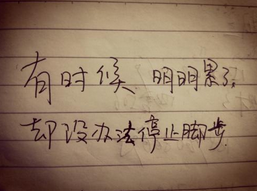 有时候 明明累了,
却没办法停止脚步.